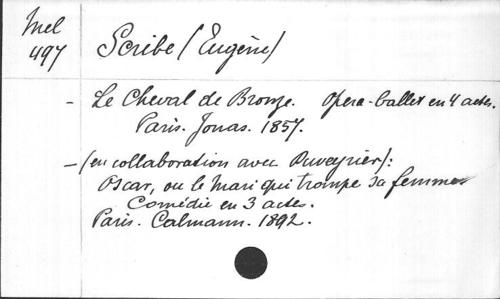 Mel
497
Scribe (Eugène)
- Le Cheval de Bronze. Opera-ballet en 4 actes.
Paris. Jonas. 1857.
- (en collaboration avec Duveyrier):
Oscar, ou le mari qui trompe sa femme
Comédie en 3 actes.
Paris. Calmann. 1892.